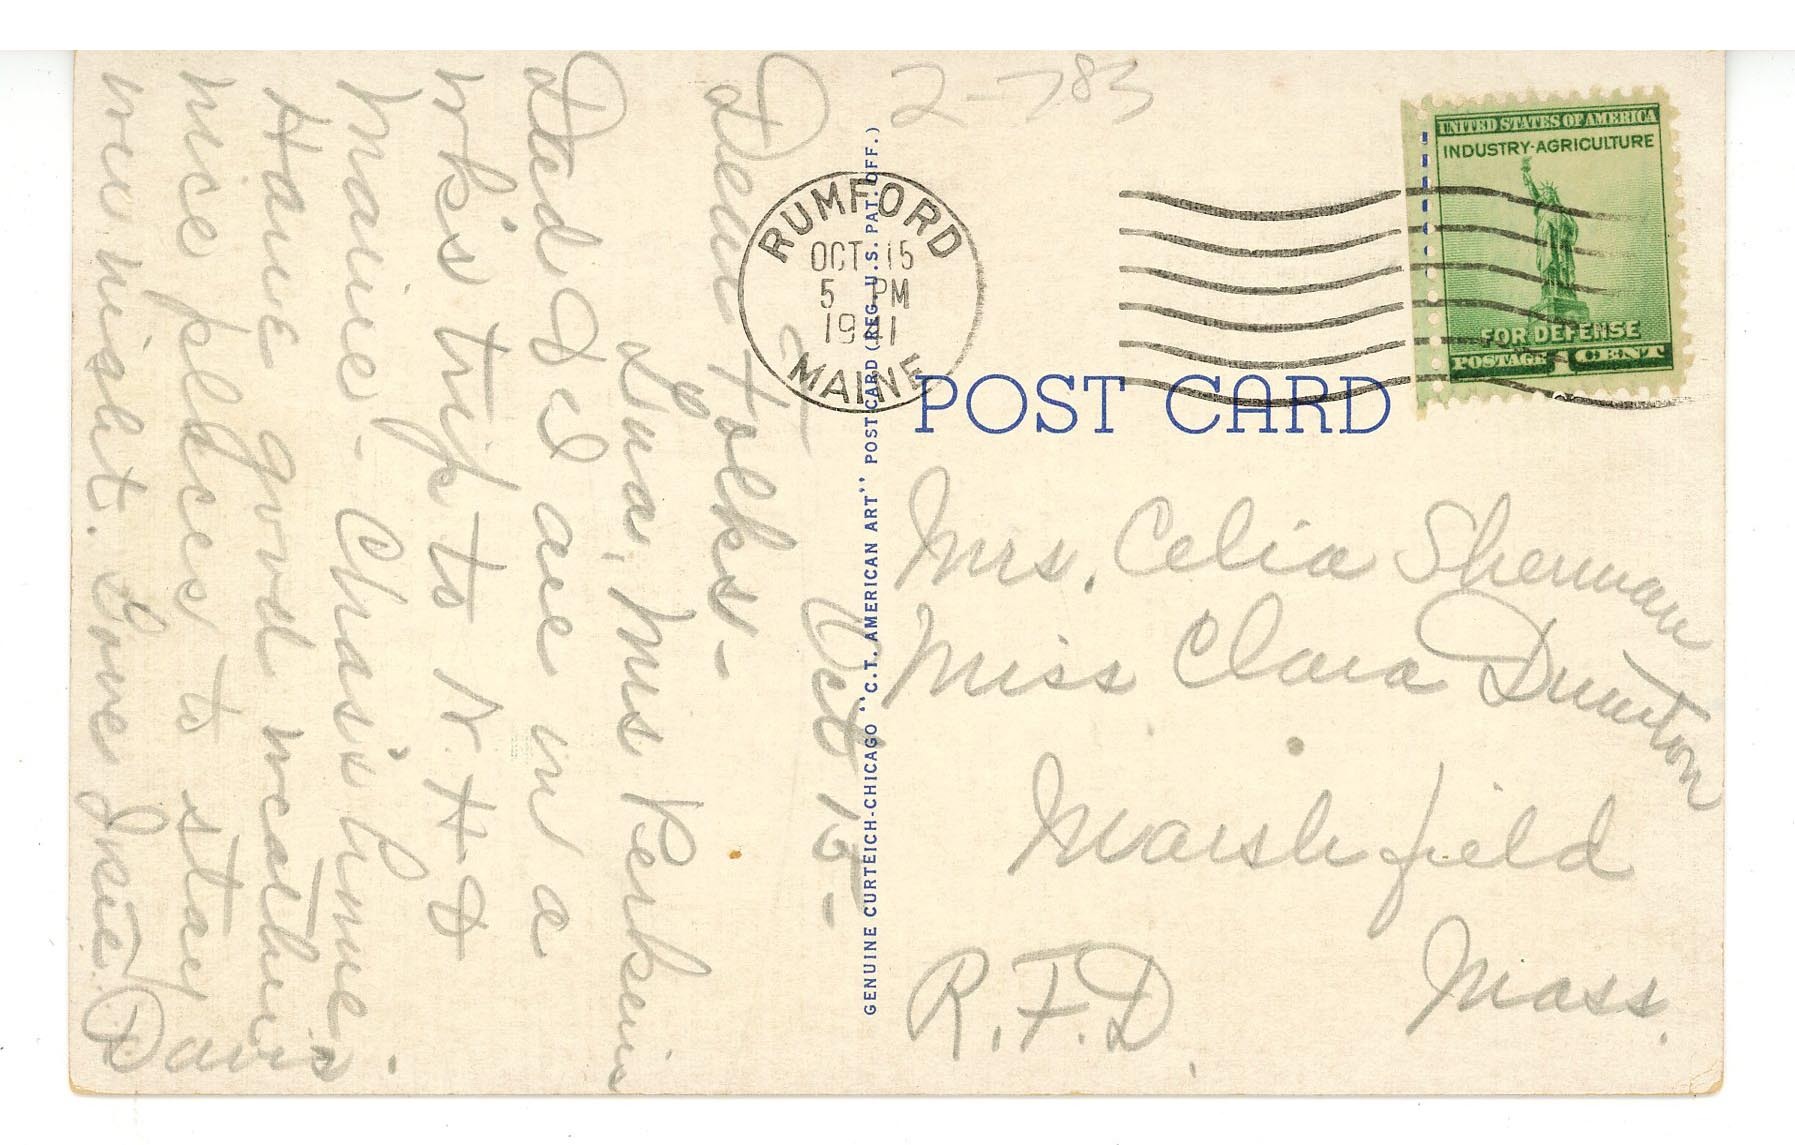 Oct 15-
Dear Folks-
Lura, Mrs Perkins
Dad & I are on a
wk's trip to N.H. &
Maine- Chas's home.
Have good weather
nice places to stay
over night. Love Josie Davis
2-783
RUMFORD
OCT 15
5 PM
1941
MAINE
UNITED STATES OF AMERICA
INDUSTRY-AGRICULTURE
FOR DEFENSE
POSTAGE 1 CENT
POST CARD
GENUINE CURTEICH-CHICAGO "C.T. AMERICAN ART" POST CARD (REG. U.S. PAT. OFF.)
Mrs. Celia Sherman
Miss Clara Dunton
Marshfield
Mass.
R.F.D.